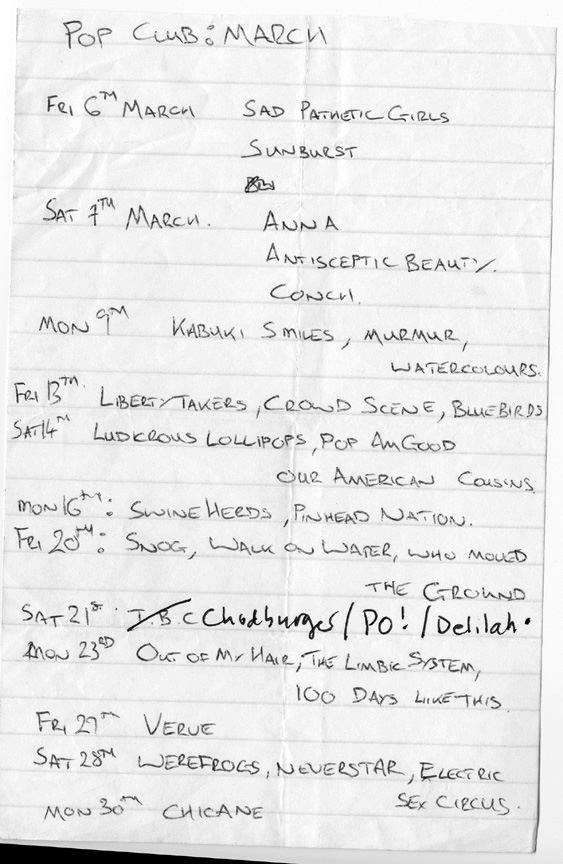 POP CLUB: MARCH
FRI 6TH MARCH SAD PATHETIC GIRLS
SUNBURST
SAT 7TH MARCH. ANNA
ANTISCEPTIC BEAUTY.
CONCH.
MON 9TH KABUKI SMILES, MURMUR,
WATERCOLOURS.
FRI 13TH. LIBERTY TAKERS, CROWD SCENE, BLUEBIRDS
SAT 14TH LUDICROUS LOLLIPOPS, POP AM GOOD
OUR AMERICAN COUSINS.
MON 16TH: SWINEHERDS, PINHEAD NATION.
FRI 20TH: SNOG, WALK ON WATER, WHO MOVED
THE GROUND
SAT 21ST. T.B.C Chodburger/PO!/Delilah.
MON 23RD OUT OF MY HAIR, THE LIMBIC SYSTEM,
100 DAYS LIKE THIS.
FRI 27TH VERVE
SAT 28TH WEREFROGS, NEVERSTAR, ELECTRIC
SEX CIRCUS.
MON 30TH CHICANE